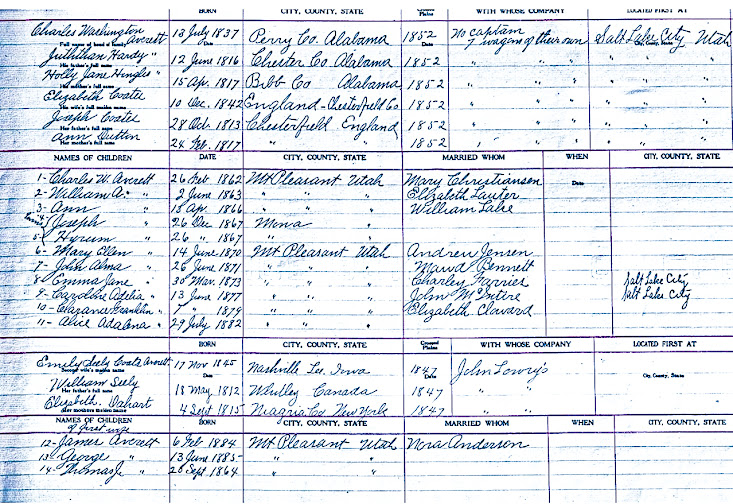 BORN CITY, COUNTY, STATE Crossed Plains WITH WHOSE COMPANY LOCATED FIRST AT
Charles Washington Averett 13 July 1837 Perry Co. Alabama 1852 No captain 7 wagons of their own Salt Lake City Utah
Full name of head of family Date Date City, County, State
Hardy " 12 June 1816 Chester Co Alabama 1852 " " " " "
His father's full name
Holly Jane Hingles " 15 Apr. 1817 Bibb Co Alabama 1852 " " " " "
His mother's full name
Elizabeth Coates 10 Dec. 1842 England - Chesterfield Co 1852 " " " " "
His wife's full maiden name
Joseph Coates 28 Oct. 1813 Chesterfield England 1852 " " " " "
Her father's full name
Ann Dutton 24 Feb. 1817 " " 1852 " " " " "
Her mother's full name
NAMES OF CHILDREN DATE CITY, COUNTY, STATE MARRIED WHOM WHEN CITY, COUNTY, STATE
1- Charles W. Averett 26 Feb 1862 Mt Pleasant Utah Mary Christiansen Date
2- William A. " 2 June 1863 " " Elizabeth Lauter
3- Ann " 18 Apr. 1866 " " William Lake
4 Joseph " 26 Dec 1867 Mona "
5- Hyrum " 26 " 1867 " "
6- Mary Ellen " 14 June 1870 Mt Pleasant Utah Andrew Jensen
7- John Alma " 26 June 1871 " " Maud Bennett
8- Emma Jane " 30 Mar. 1873 " " Charley Farries Salt Lake City
9- Caroline Adelia " 13 June 1877 " " John McIntire Salt Lake City
10- Clarance Franklin " 7 " 1879 " " Elizabeth Cloward
11- Alice Adalena " 29 July 1882 " "
BORN CITY, COUNTY, STATE Crossed Plains WITH WHOSE COMPANY LOCATED FIRST AT
Emily Seely Coats Averett 17 Nov 1845 Nashville Lee, Iowa 1847 John Lowry's
Second wife's maiden name Date Date City, County, State
William Seely 18 May 1812 Whitley Canada 1847 " "
Her father's full name
Elizabeth 4 Sept 1815 Niagria Co New York 1847 " "
Her mothers maiden name
NAMES OF CHILDREN BORN CITY, COUNTY, STATE MARRIED WHOM WHEN CITY, COUNTY, STATE
of first wife
12- James Averett 6 Feb 1884 Mt Pleasant Utah Nora Anderson
13 George " 13 June 1885- " "
14- Thomas J. " 20 Sept 1864 " "